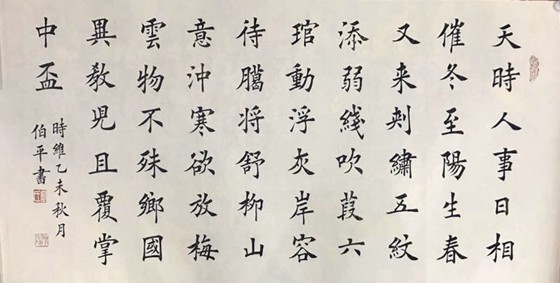 天時人事日相
催冬至陽生春
又来刺繡五紋
添弱綫吹葭六
琯動浮灰岸容
待臘将舒柳山
意沖寒欲放梅
雲物不殊鄉國
異教兒且覆掌
中盃
時維乙未秋月
伯平書